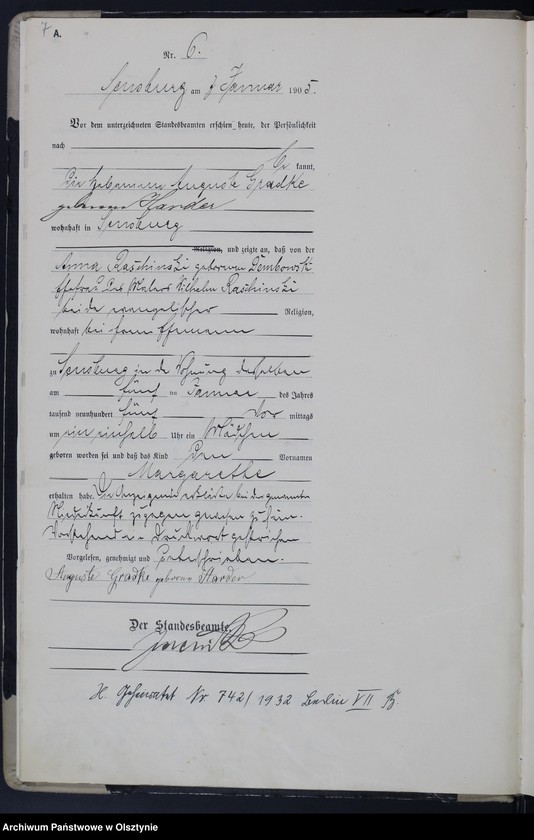 7 A.
Nr. 6.
Sensburg am 7 Januar 1905.
Vor dem unterzeichneten Standesbeamten erschien heute, der Persönlichkeit
nach
kannt,
Die Hebamme Auguste Gradke
geborene Harder
wohnhaft in Sensburg
Religion, und zeigte an, daß von der
Anna Raschinski geborenen Dembowski
Ehefrau des Malers Wilhelm Raschinski
beide evangelischer Religion,
wohnhaft bei ihrem Ehemann
zu Sensburg in der Wohnung desselben
am fünf ten Januar des Jahres
tausend neunhundert fünf Vor mittags
um ein einhalb Uhr ein Mädchen
geboren worden sei und daß das Kind den Vornamen
Margarethe
erhalten habe. Die Anzeigende erklärte bei der genannten
Niederkunft zugegen gewesen zu sein.
Vorstehend Druckwort gestrichen
Vorgelesen, genehmigt und unterschrieben.
Auguste Gradke geborene Harder
Der Standesbeamte.
H. Geheiratet Nr. 742/1932 Berlin VII
Archiwum Państwowe w Olsztynie